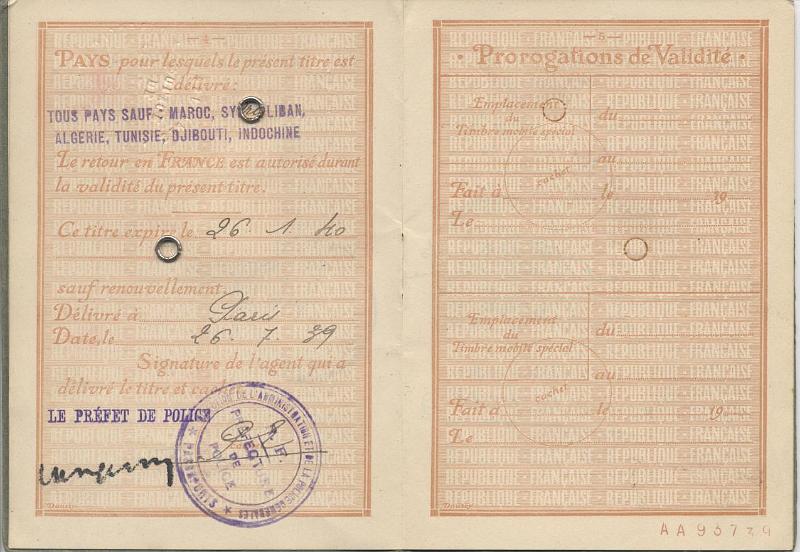 — 4 —
PAYS pour lesquels le présent titre est
délivré:
TOUS PAYS SAUF : MAROC, SYRIE LIBAN,
ALGERIE, TUNISIE, DJIBOUTI, INDOCHINE
Le retour en FRANCE est autorisé durant
la validité du présent titre.
Ce titre expire le 26. 1. 40
sauf renouvellement.
Délivré à Paris
Date, le 26. 7. 39
Signature de l'agent qui a
délivré le titre et cachet
LE PRÉFET DE POLICE
PRÉFECTURE
DE
POLICE
— 5 —
· Prorogations de Validité ·
Emplacement
du
Timbre mobile spécial
du
au
cachet
Fait à le 19
Le
Emplacement
du
Timbre mobile spécial
du
au
cachet
Fait à le 19
Le
RÉPUBLIQUE - FRANÇAISE